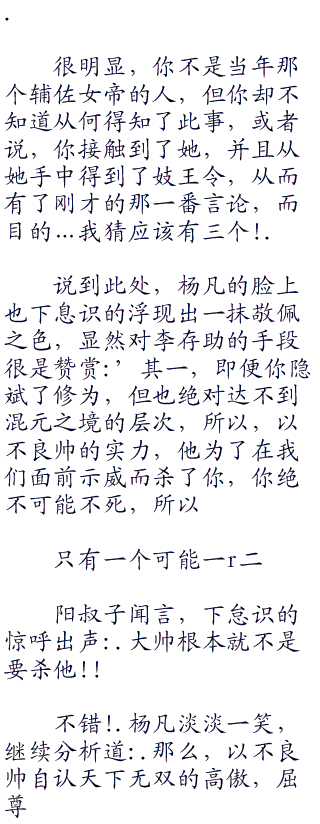 .
很明显，你不是当年那
个辅佐女帝的人，但你却不
知道从何得知了此事，或者
说，你接触到了她，并且从
她手中得到了妓王令，从而
有了刚才的那一番言论，而
目的…我猜应该有三个!.
说到此处，杨凡的脸上
也下息识的浮现出一抹敬佩
之色，显然对李存助的手段
很是赞赏:’其一，即便你隐
斌了修为，但也绝对达不到
混元之境的层次，所以，以
不良帅的实力，他为了在我
们面前示威而杀了你，你绝
不可能不死，所以
只有一个可能一r二
阳叔子闻言，下怠识的
惊呼出声:.大帅根本就不是
要杀他!!
不错!.杨凡淡淡一笑，
继续分析道:.那么，以不良
帅自认天下无双的高傲，屈
尊